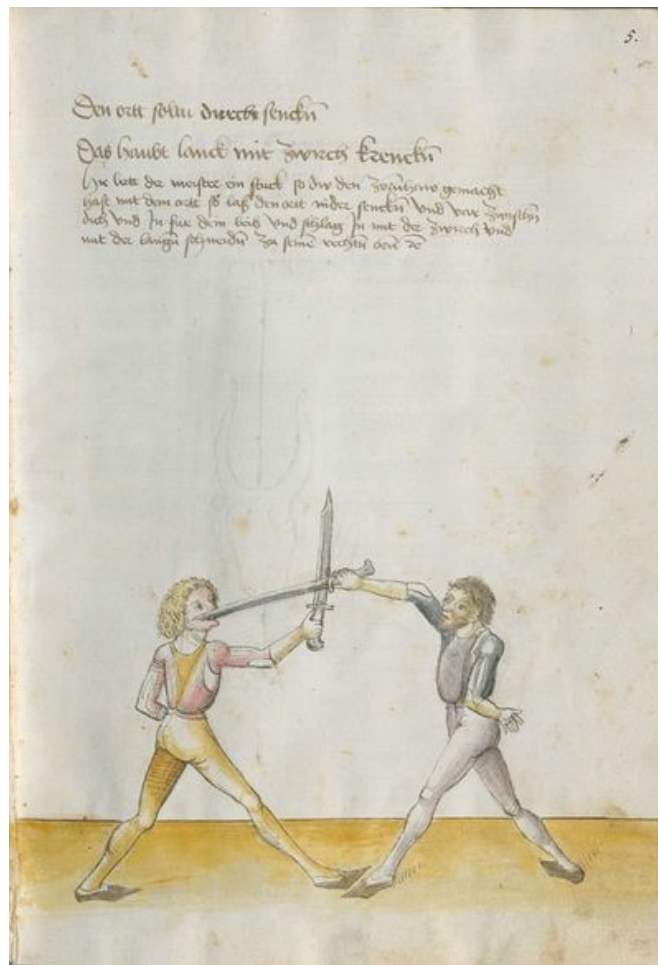 5.
Den ortt soltu durch senckn̄
Das haubt lanck mit zwirch krenckn̄
Hie lett der meister ein stuck so dw den zornhaw gemacht
hast mit dem ortt so laß den ortt nider senckn̄ vnd var zwischn̄
dich vnd In fur dem leib vnd schlag In mit der zwerch vnd
mit der langn̄ schneidn̄ zu seinē rechtn̄ orn̄ ꝛc